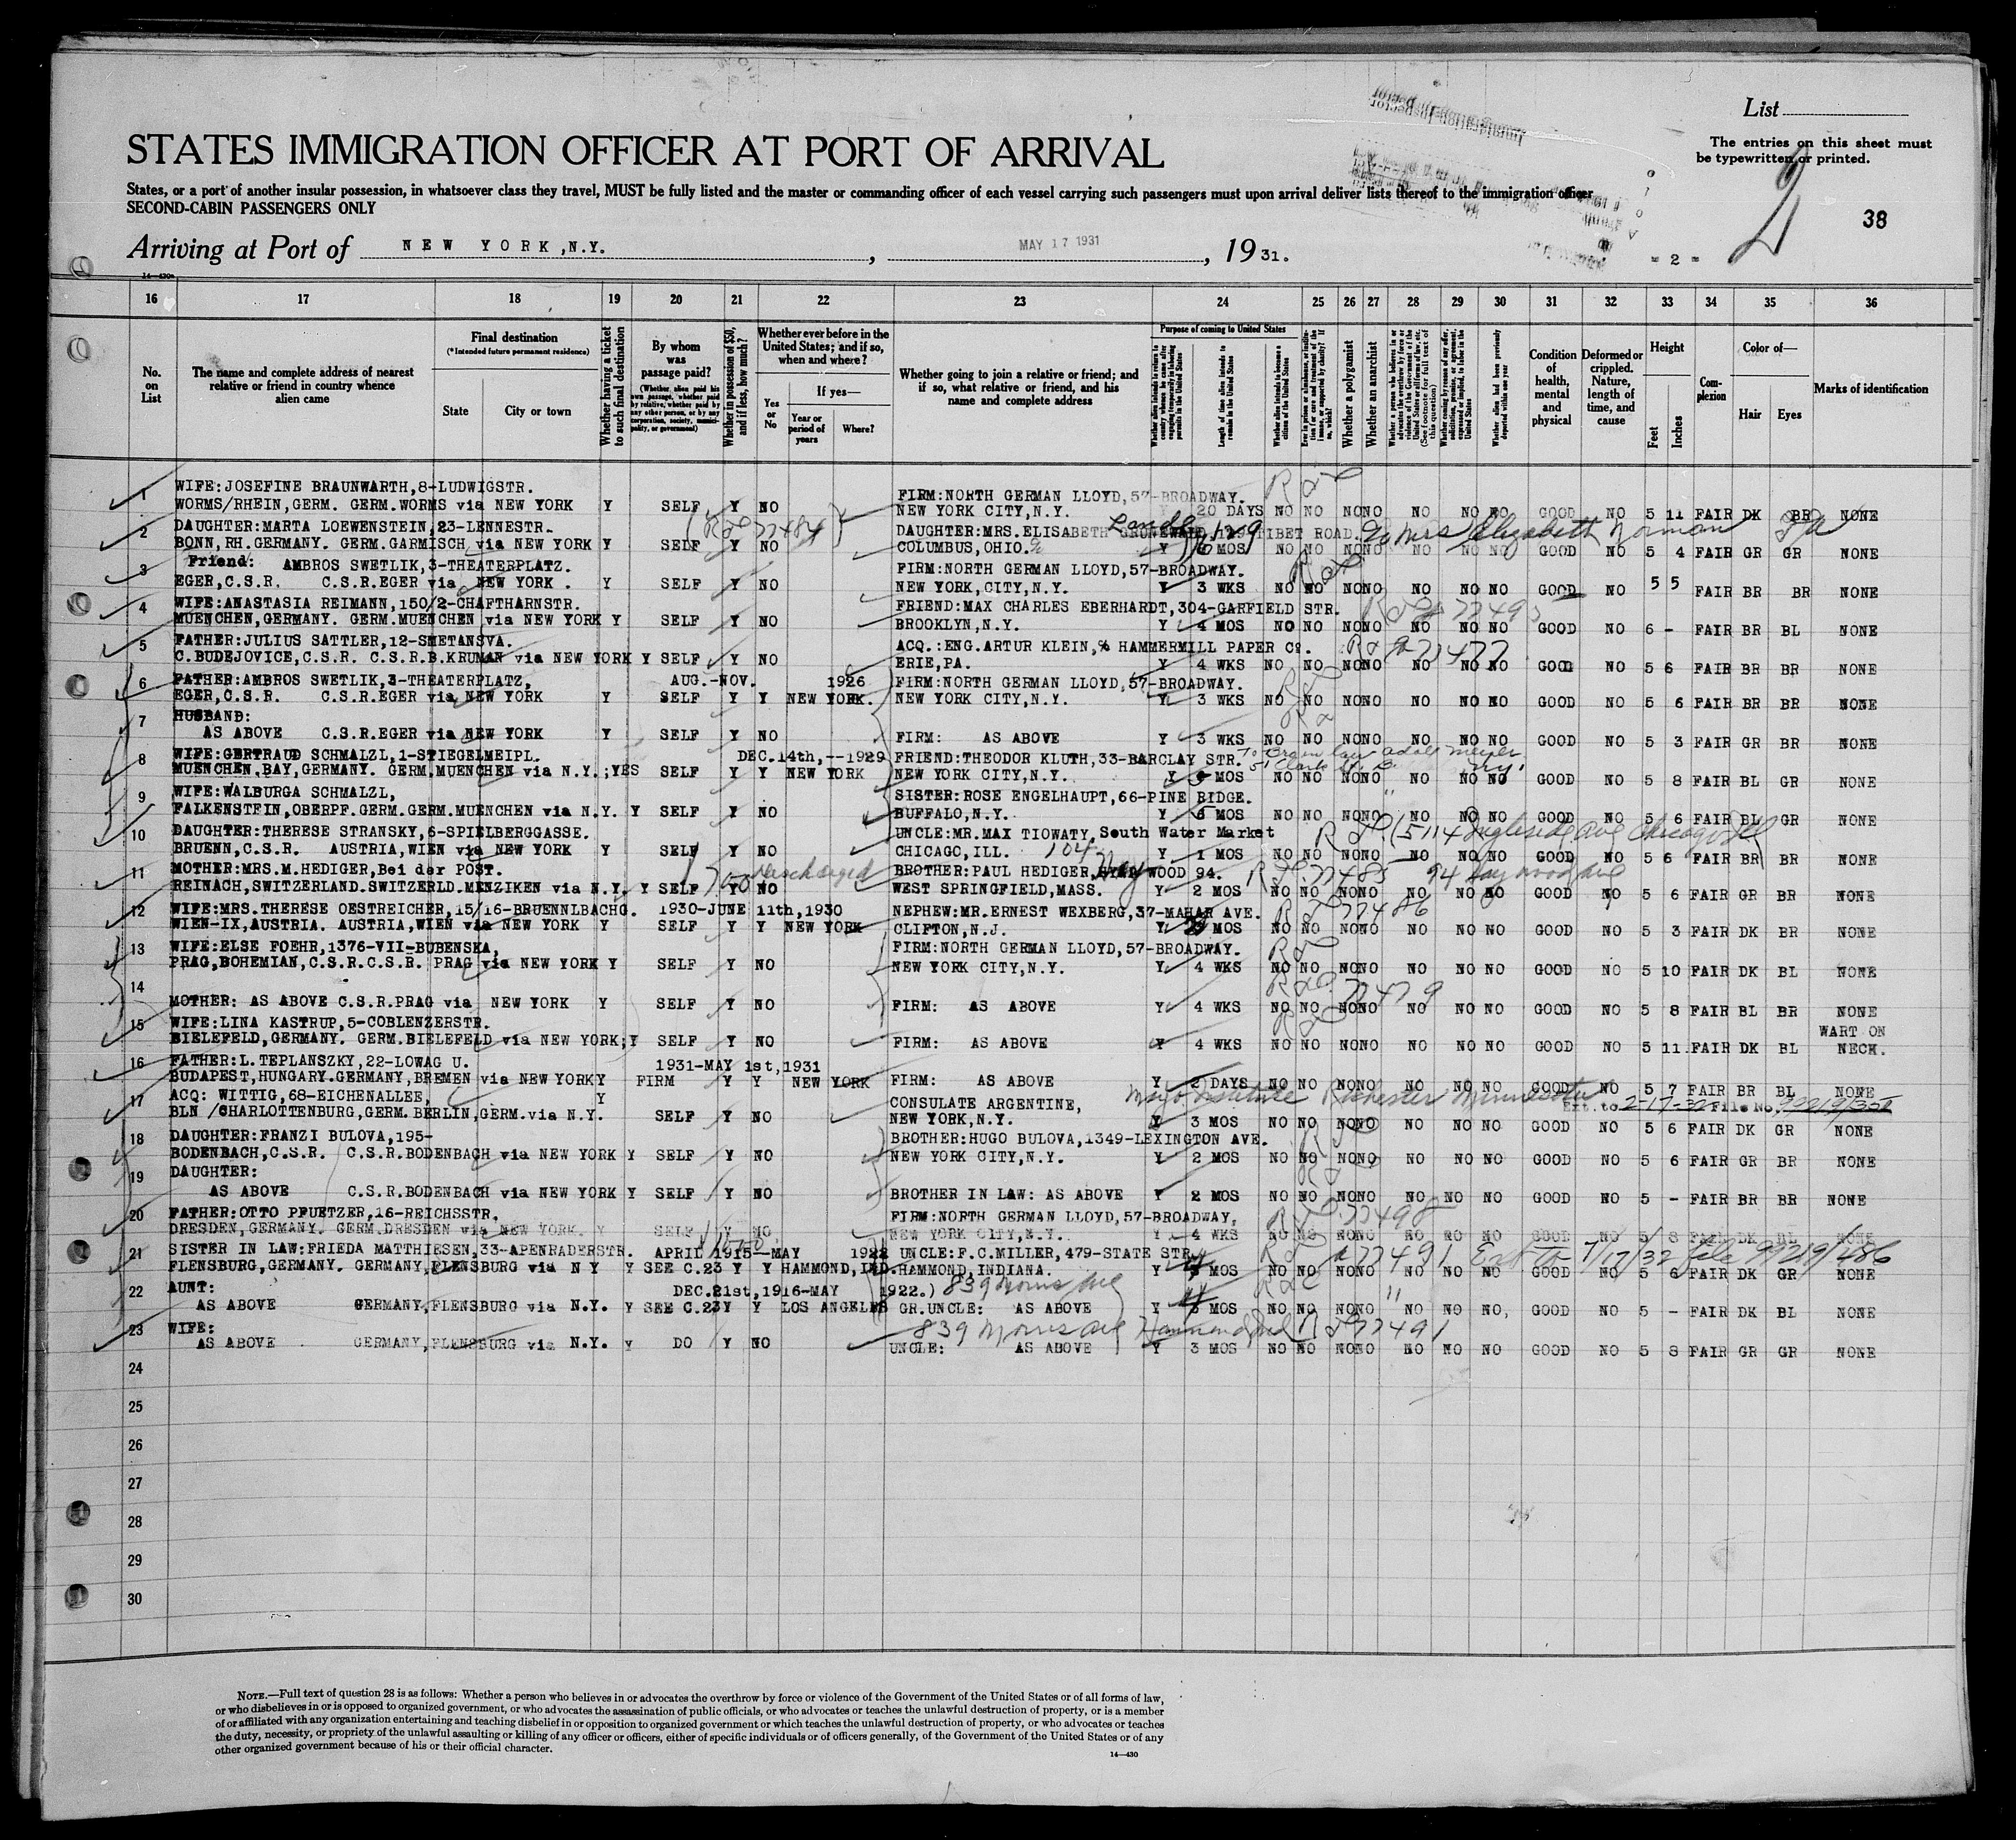 List
The entries on this sheet must
be typewritten or printed.
STATES IMMIGRATION OFFICER AT PORT OF ARRIVAL
States, or a port of another insular possession, in whatsoever class they travel, MUST be fully listed and the master or commanding officer of each vessel carrying such passengers must upon arrival deliver lists thereof to the immigration officer
SECOND-CABIN PASSENGERS ONLY
2
38
Arriving at Port of NEW YORK, N.Y. , MAY 17 1931 , 19 31.
= 2 =
14—430a
16 17 18 19 20 21 22 23 24 25 26 27 28 29 30 31 32 33 34 35 36
No. on List
The name and complete address of nearest relative or friend in country whence alien came
Final destination
(*Intended future permanent residence)
State
City or town
Whether having a ticket to such final destination
By whom was passage paid?
(Whether alien paid his own passage, whether paid by relative, whether paid by any other person, or by any corporation, society, municipality, or government)
Whether in possession of $50, and if less, how much?
Whether ever before in the United States; and if so, when and where?
Yes or No
If yes—
Year or period of years
Where?
Whether going to join a relative or friend; and if so, what relative or friend, and his name and complete address
Purpose of coming to United States
Length of time alien intends to remain in the United States
Whether alien intends to become a citizen of the United States
Whether a polygamist
Whether an anarchist
Condition of health, mental and physical
Deformed or crippled. Nature, length of time, and cause
Height
Feet
Inches
Complexion
Color of—
Hair
Eyes
Marks of identification
1 WIFE:JOSEFINE BRAUNWARTH,8-LUDWIGSTR. FIRM:NORTH GERMAN LLOYD,57-BROADWAY.
WORMS/RHEIN,GERM. GERM.WORMS via NEW YORK Y SELF Y NO NEW YORK CITY,N.Y. 20 DAYS NO NO NONO NO NO NO GOOD NO 5 11 FAIR DK BR NONE
2 DAUGHTER:MARTA LOEWENSTEIN,23-LENNESTR. DAUGHTER:MRS.ELISABETH 1209 TIBET ROAD. % Mrs Elizabeth Norman
BONN,RH.GERMANY. GERM.GARMISCH via NEW YORK Y SELF Y NO COLUMBUS,OHIO. Y 6 MOS NO NO NONO NO NO NO GOOD NO 5 4 FAIR GR GR NONE
3 Friend: AMBROS SWETLIK,3-THEATERPLATZ. FIRM:NORTH GERMAN LLOYD,57-BROADWAY.
EGER,C.S.R. C.S.R.EGER via NEW YORK . Y SELF Y NO NEW YORK,CITY,N.Y. Y 3 WKS NO NO NONO NO NO NO GOOD NO 5 5 FAIR BR BR NONE
4 WIFE:ANASTASIA REIMANN,150/2-CHAFTHARNSTR. FRIEND:MAX CHARLES EBERHARDT,304-GARFIELD STR.
MUENCHEN,GERMANY. GERM.MUENCHEN via NEW YORK Y SELF Y NO BROOKLYN,N.Y. Y 4 MOS NO NO NONO NO NO NO GOOD NO 6 - FAIR BR BL NONE
5 FATHER:JULIUS SATTLER,12-SMETANSVA. ACQ.:ENG.ARTUR KLEIN,% HAMMERMILL PAPER Co.
C.BUDEJOVICE,C.S.R. C.S.R.B.KRUMAN via NEW YORK Y SELF Y NO ERIE,PA. Y 4 WKS NO NO NONO NO NO NO GOOD NO 5 6 FAIR BR BR NONE
6 FATHER:AMBROS SWETLIK,3-THEATERPLATZ, AUG.-NOV. 1926 FIRM:NORTH GERMAN LLOYD,57-BROADWAY.
EGER,C.S.R. C.S.R.EGER via NEW YORK Y SELF Y Y NEW YORK. NEW YORK CITY,N.Y. Y 3 WKS NO NO NONO NO NO NO GOOD NO 5 6 FAIR BR BR NONE
7 HUSBAND:
AS ABOVE C.S.R.EGER via NEW YORK Y SELF Y NO FIRM: AS ABOVE Y 3 WKS NO NO NONO NO NO NO GOOD NO 5 3 FAIR GR BR NONE
8 WIFE:GERTRAUD SCHMALZL,1-STIEGELMEIPL. DEC.14th,--1929 FRIEND:THEODOR KLUTH,33-BARCLAY STR.
MUENCHEN.BAY,GERMANY. GERM.MUENCHEN via N.Y.;YES SELF Y Y NEW YORK NEW YORK CITY,N.Y. Y MOS NO NO NONO NO NO NO GOOD NO 5 8 FAIR BL GR NONE
9 WIFE:WALBURGA SCHMALZL, SISTER:ROSE ENGELHAUPT,66-PINE RIDGE.
FALKENSTFIN,OBERPF.GERM.GERM.MUENCHEN via N.Y. Y SELF Y NO BUFFALO,N.Y. Y MOS NO NO NONO NO NO NO GOOD NO 5 6 FAIR BL GR NONE
10 DAUGHTER:THERESE STRANSKY,6-SPIELBERGGASSE. UNCLE:MR.MAX TIOWATY,South Water Market 5114 Ingleside Ave Chicago Ill
BRUENN,C.S.R. AUSTRIA,WIEN via NEW YORK Y SELF Y NO CHICAGO,ILL. 104 Y 1 MOS NO NO NONO NO NO NO GOOD NO 5 6 FAIR BR BR NONE
11 MOTHER:MRS.M.HEDIGER,Bei der POST. discharged BROTHER:PAUL HEDIGER, Hay WOOD 94. 94 Haywood Ave
REINACH,SWITZERLAND.SWITZERLD.MENZIKEN via N.Y. Y SELF Y NO WEST SPRINGFIELD,MASS. Y 2 MOS NO NO NONO NO NO NO GOOD NO 5 6 FAIR GR BR NONE
12 WIFE:MRS.THERESE OESTREICHER,15/16-BRUENNLBACHG. 1930-JUNE 11th,1930 NEPHEW:MR.ERNEST WEXBERG,37-MAHAR AVE. 77486
WIEN-IX,AUSTRIA. AUSTRIA,WIEN via NEW YORK Y SELF Y Y NEW YORK CLIFTON,N.J. Y MOS NO NO NONO NO NO NO GOOD NO 5 3 FAIR DK BR NONE
13 WIFE:ELSE FOEHR,1376-VII-BUBENSKA, FIRM:NORTH GERMAN LLOYD,57-BROADWAY.
PRAG,BOHEMIAN,C.S.R.C.S.R. PRAG via NEW YORK Y SELF Y NO NEW YORK CITY,N.Y. Y 4 WKS NO NO NONO NO NO NO GOOD NO 5 10 FAIR DK BL NONE
14 77479
MOTHER: AS ABOVE C.S.R.PRAG via NEW YORK Y SELF Y NO FIRM: AS ABOVE Y 4 WKS NO NO NONO NO NO NO GOOD NO 5 8 FAIR BL BR NONE
15 WIFE:LINA KASTRUP,5-COBLENZERSTR. WART ON
BIELEFELD,GERMANY. GERM.BIELEFELD via NEW YORK;Y SELF Y NO FIRM: AS ABOVE Y 4 WKS NO NO NONO NO NO NO GOOD NO 5 11 FAIR DK BL NECK.
16 FATHER:L.TEPLANSZKY,22-LOWAG U. 1931-MAY 1st,1931
BUDAPEST,HUNGARY.GERMANY,BREMEN via NEW YORKY FIRM Y Y NEW YORK FIRM: AS ABOVE Y 2 DAYS NO NO NONO NO NO NO GOOD NO 5 7 FAIR BR BL NONE
17 ACQ: WITTIG,68-EICHENALLEE, Y CONSULATE ARGENTINE, Mayo Institute Rochester Minnesota Ext. to 2-17-32 File No.
BLN /CHARLOTTENBURG,GERM.BERLIN,GERM.via N.Y. SELF Y NO NEW YORK,N.Y. Y 3 MOS NO NO NONO NO NO NO GOOD NO 5 6 FAIR DK GR NONE
18 DAUGHTER:FRANZI BULOVA,195- BROTHER:HUGO BULOVA,1349-LEXINGTON AVE.
BODENBACH,C.S.R. C.S.R.BODENBACH via NEW YORK Y SELF Y NO NEW YORK CITY,N.Y. Y 2 MOS NO NO NONO NO NO NO GOOD NO 5 6 FAIR GR BR NONE
19 DAUGHTER:
AS ABOVE C.S.R.BODENBACH via NEW YORK Y SELF Y NO BROTHER IN LAW: AS ABOVE Y 2 MOS NO NO NONO NO NO NO GOOD NO 5 - FAIR BR BR NONE
20 FATHER:OTTO PFUETZER,16-REICHSSTR. FIRM:NORTH GERMAN LLOYD,57-BROADWAY, 77498
DRESDEN,GERMANY. GERM.DRESDEN via NEW YORK. Y SELF Y NO NEW YORK CITY,N.Y. Y 4 WKS NO NO NONO NO NO NO GOOD NO 5 8 FAIR DK BL NONE
21 SISTER IN LAW:FRIEDA MATTHIESEN,33-APENRADERSTR. APRIL 1915--MAY 1922 UNCLE:F.C.MILLER,479-STATE STR. 77491 Ext to 7/17/32 file 99219/486
FLENSBURG,GERMANY. GERMANY,FLENSBURG via N Y Y SEE C.23 Y Y HAMMOND,IND. HAMMOND,INDIANA. Y MOS NO NO NONO NO NO NO GOOD NO 5 6 FAIR DK GR NONE
22 AUNT: DEC.21st,1916-MAY 1922.) 839 Morris Ave
AS ABOVE GERMANY,FLENSBURG via N.Y. Y SEE C.23Y Y LOS ANGELES GR.UNCLE: AS ABOVE Y MOS NO NO NONO NO NO NO, GOOD NO 5 - FAIR DK BL NONE
23 WIFE: 839 Morris Ave Hammond Ind 77491
AS ABOVE GERMANY,FLENSBURG via N.Y. Y DO Y NO UNCLE: AS ABOVE Y 3 MOS NO NO NONO NO NO NO GOOD NO 5 8 FAIR GR GR NONE
24
25
26
27
28
29
30
NOTE.—Full text of question 28 is as follows: Whether a person who believes in or advocates the overthrow by force or violence of the Government of the United States or of all forms of law,
or who disbelieves in or is opposed to organized government, or who advocates the assassination of public officials, or who advocates or teaches the unlawful destruction of property, or is a member
of or affiliated with any organization entertaining and teaching disbelief in or opposition to organized government or which teaches the unlawful destruction of property, or who advocates or teaches
the duty, necessity, or propriety of the unlawful assaulting or killing of any officer or officers, either of specific individuals or of officers generally, of the Government of the United States or of any
other organized government because of his or their official character.
14—430